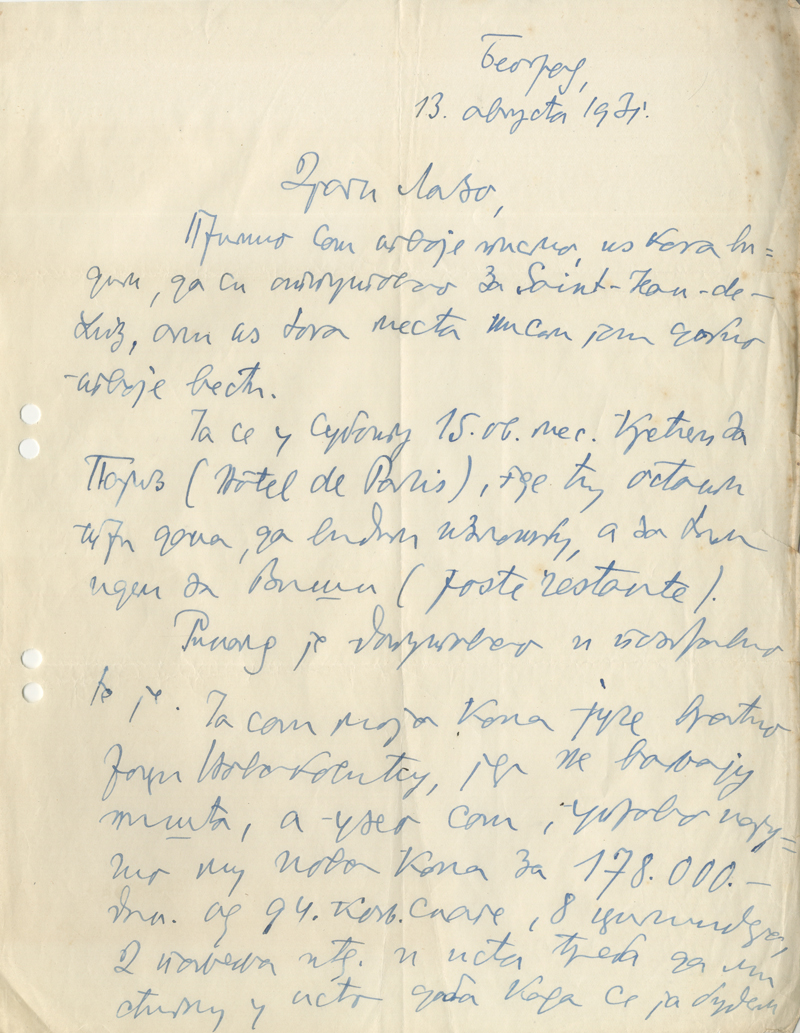 Београд,
13. августа 1931.
Драги Лазо,
Примио сам твоје писмо, из кога ви=
дим, да си отпутовао за Saint-Jean-de-
Luz, али из тога места нисам још добио
твоје вести.
Ја се у суботу 15. ов. мес. крећем за
Париз (Hôtel de Paris), где ћу остати
три дана, да видим изложбу, а за тим
идем за Виши (poste restante).
је допутовао и поздравио
те је. Ја сам моја кола јуче вратио
јер не ваљају
ништа, а узео сам,
му нова кола за 178.000.-
дин. од 94. коњ. снаге, 8 цилиндра,
2 итд. и иста треба да ми
стигну у исто доба када се ја будем